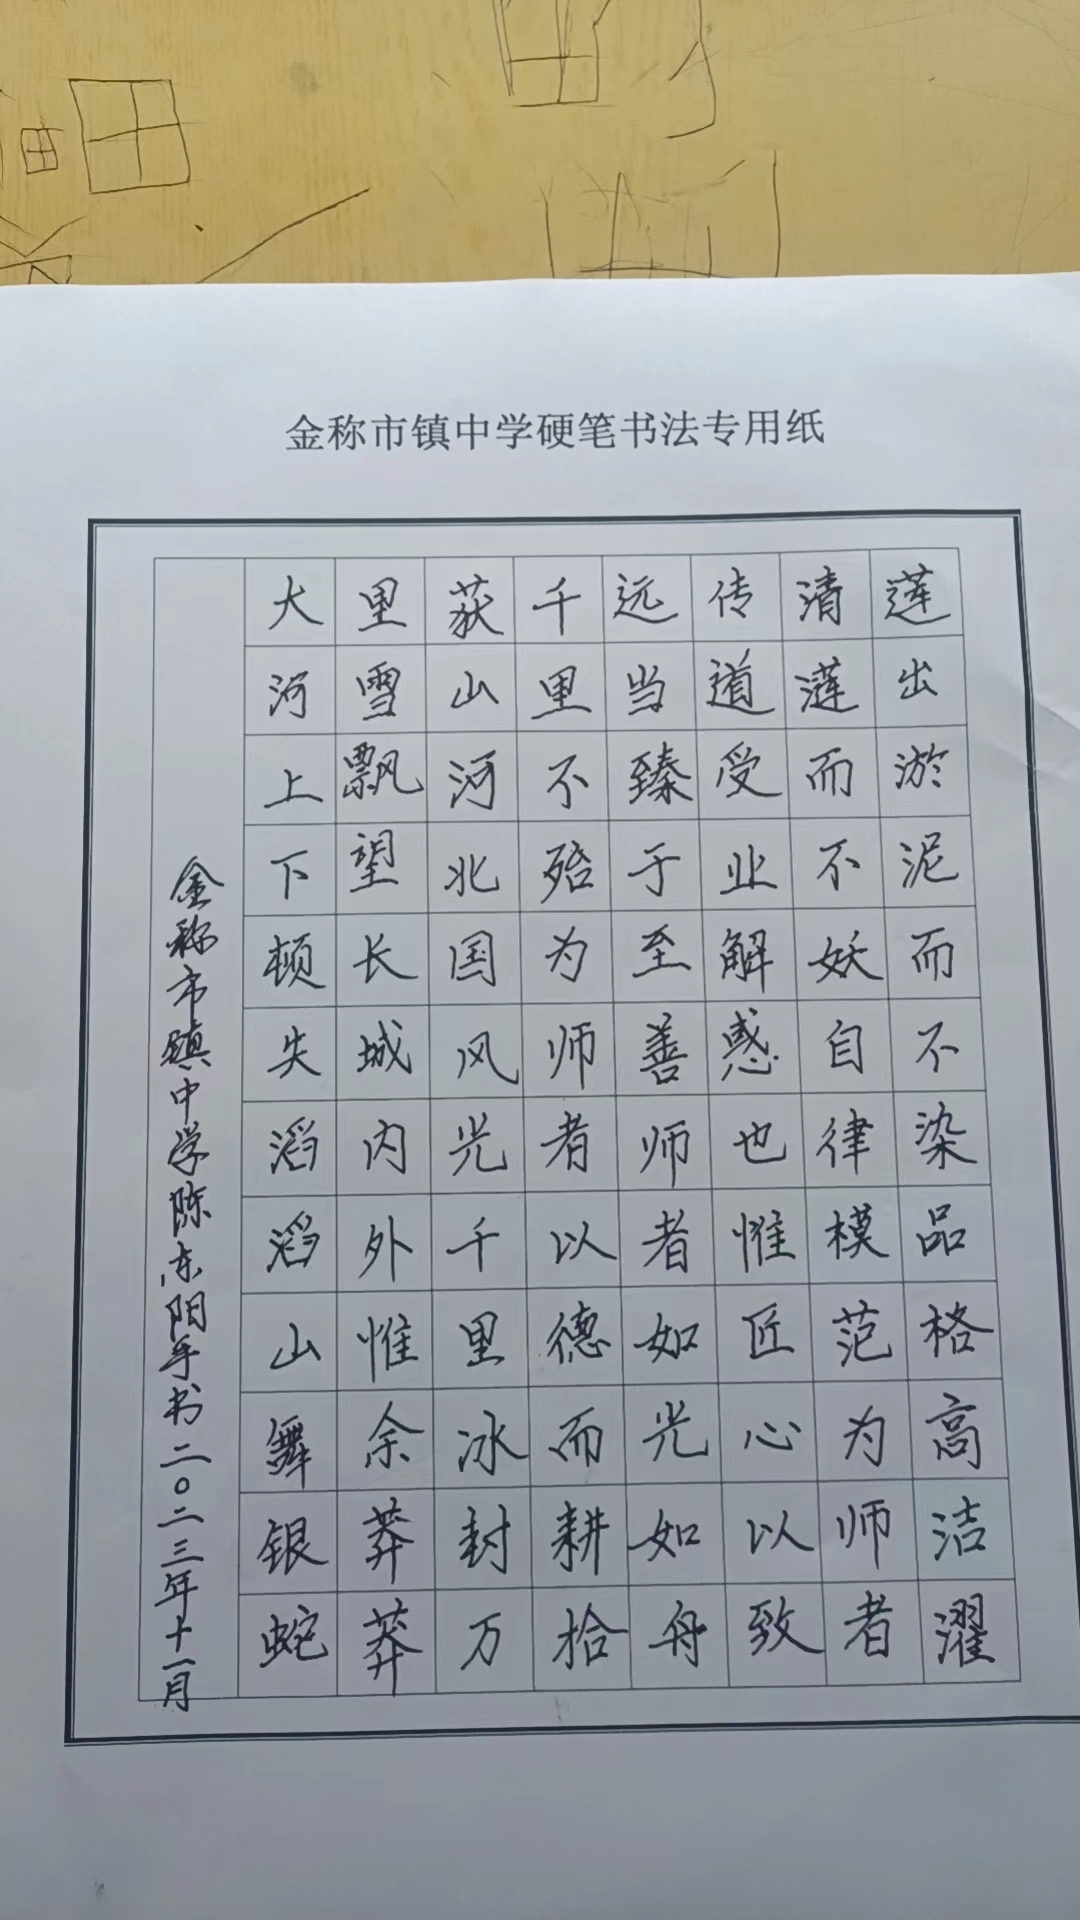 金称市镇中学硬笔书法专用纸
莲出淤泥而不染品格高洁濯
清涟而不妖自律模范为师者
传道受业解惑也惟匠心以致
远当臻于至善师者如光如舟
千里不殆为师者以德而耕拾
获山河北国风光千里冰封万
里雪飘望长城内外惟余莽莽
大河上下顿失滔滔山舞银蛇
金称市镇中学陈东阳手书二〇二三年十一月